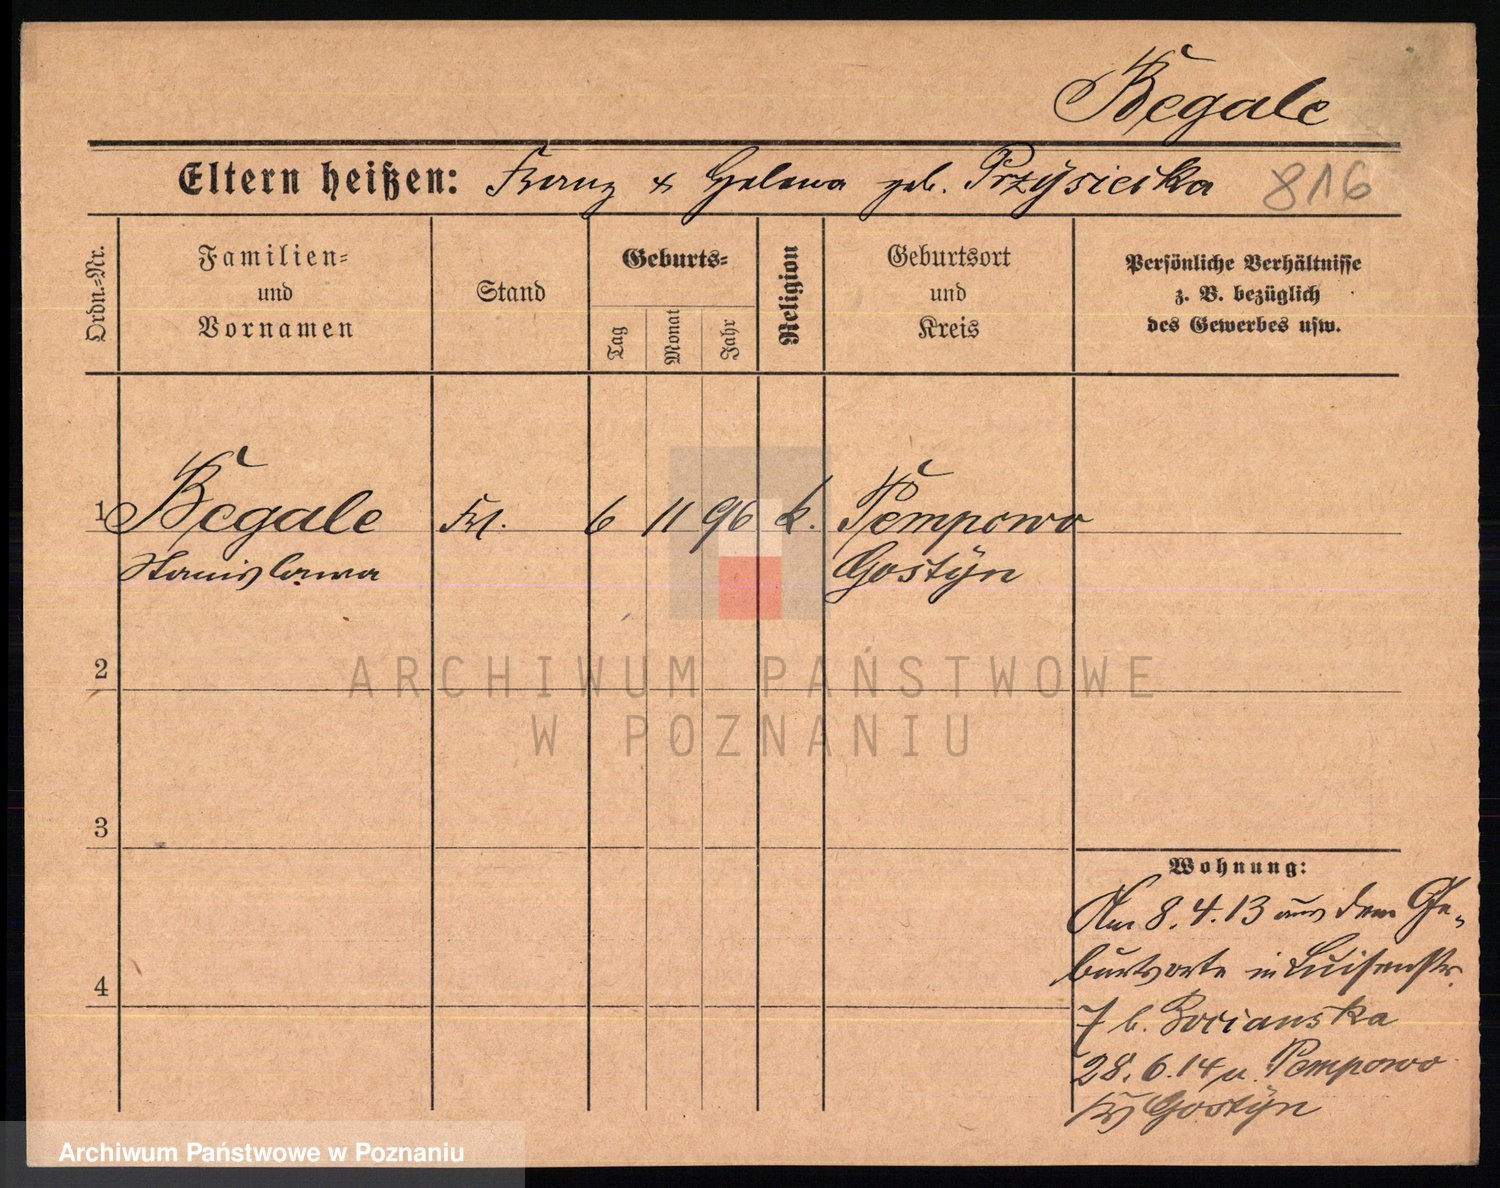 Begale
Eltern heißen: Franz & Helena geb. Przysiecka 816
Ordn.-Nr.
Familien-
und
Vornamen
Stand
Geburts-
Tag
Monat
Jahr
Religion
Geburtsort
und
Kreis
Persönliche Verhältnisse
z. B. bezüglich
des Gewerbes usw.
1 Begale Frl. 6 11 96 k. Pempowo
Stanislawa Gostyn
2
3
4
Wohnung:
Am 8.4.13 aus dem Ge-
burtsorte in Luisenstr.
7 b. Bocianska
28.6.14 n. Pempowo
Krs Gostyn
ARCHIWUM PAŃSTWOWE
W POZNANIU
Archiwum Państwowe w Poznaniu